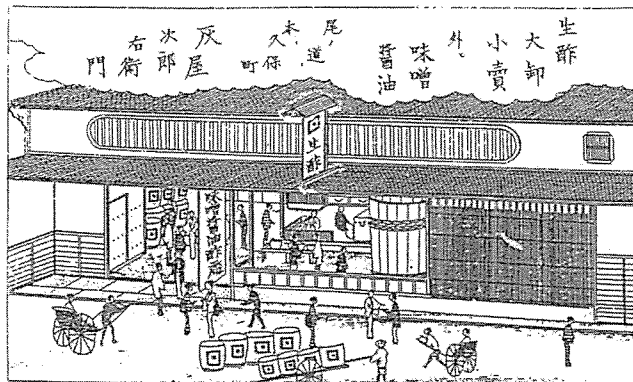 生酢
大卸
小賣
外ニ
味噌
醤油
尾ノ道
本、
久保
町
灰屋
次郎
右衛
門
生酢
味噌醤油酢造